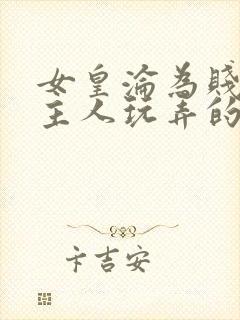 女皇淪為賤
主人玩弄的
卡吉安